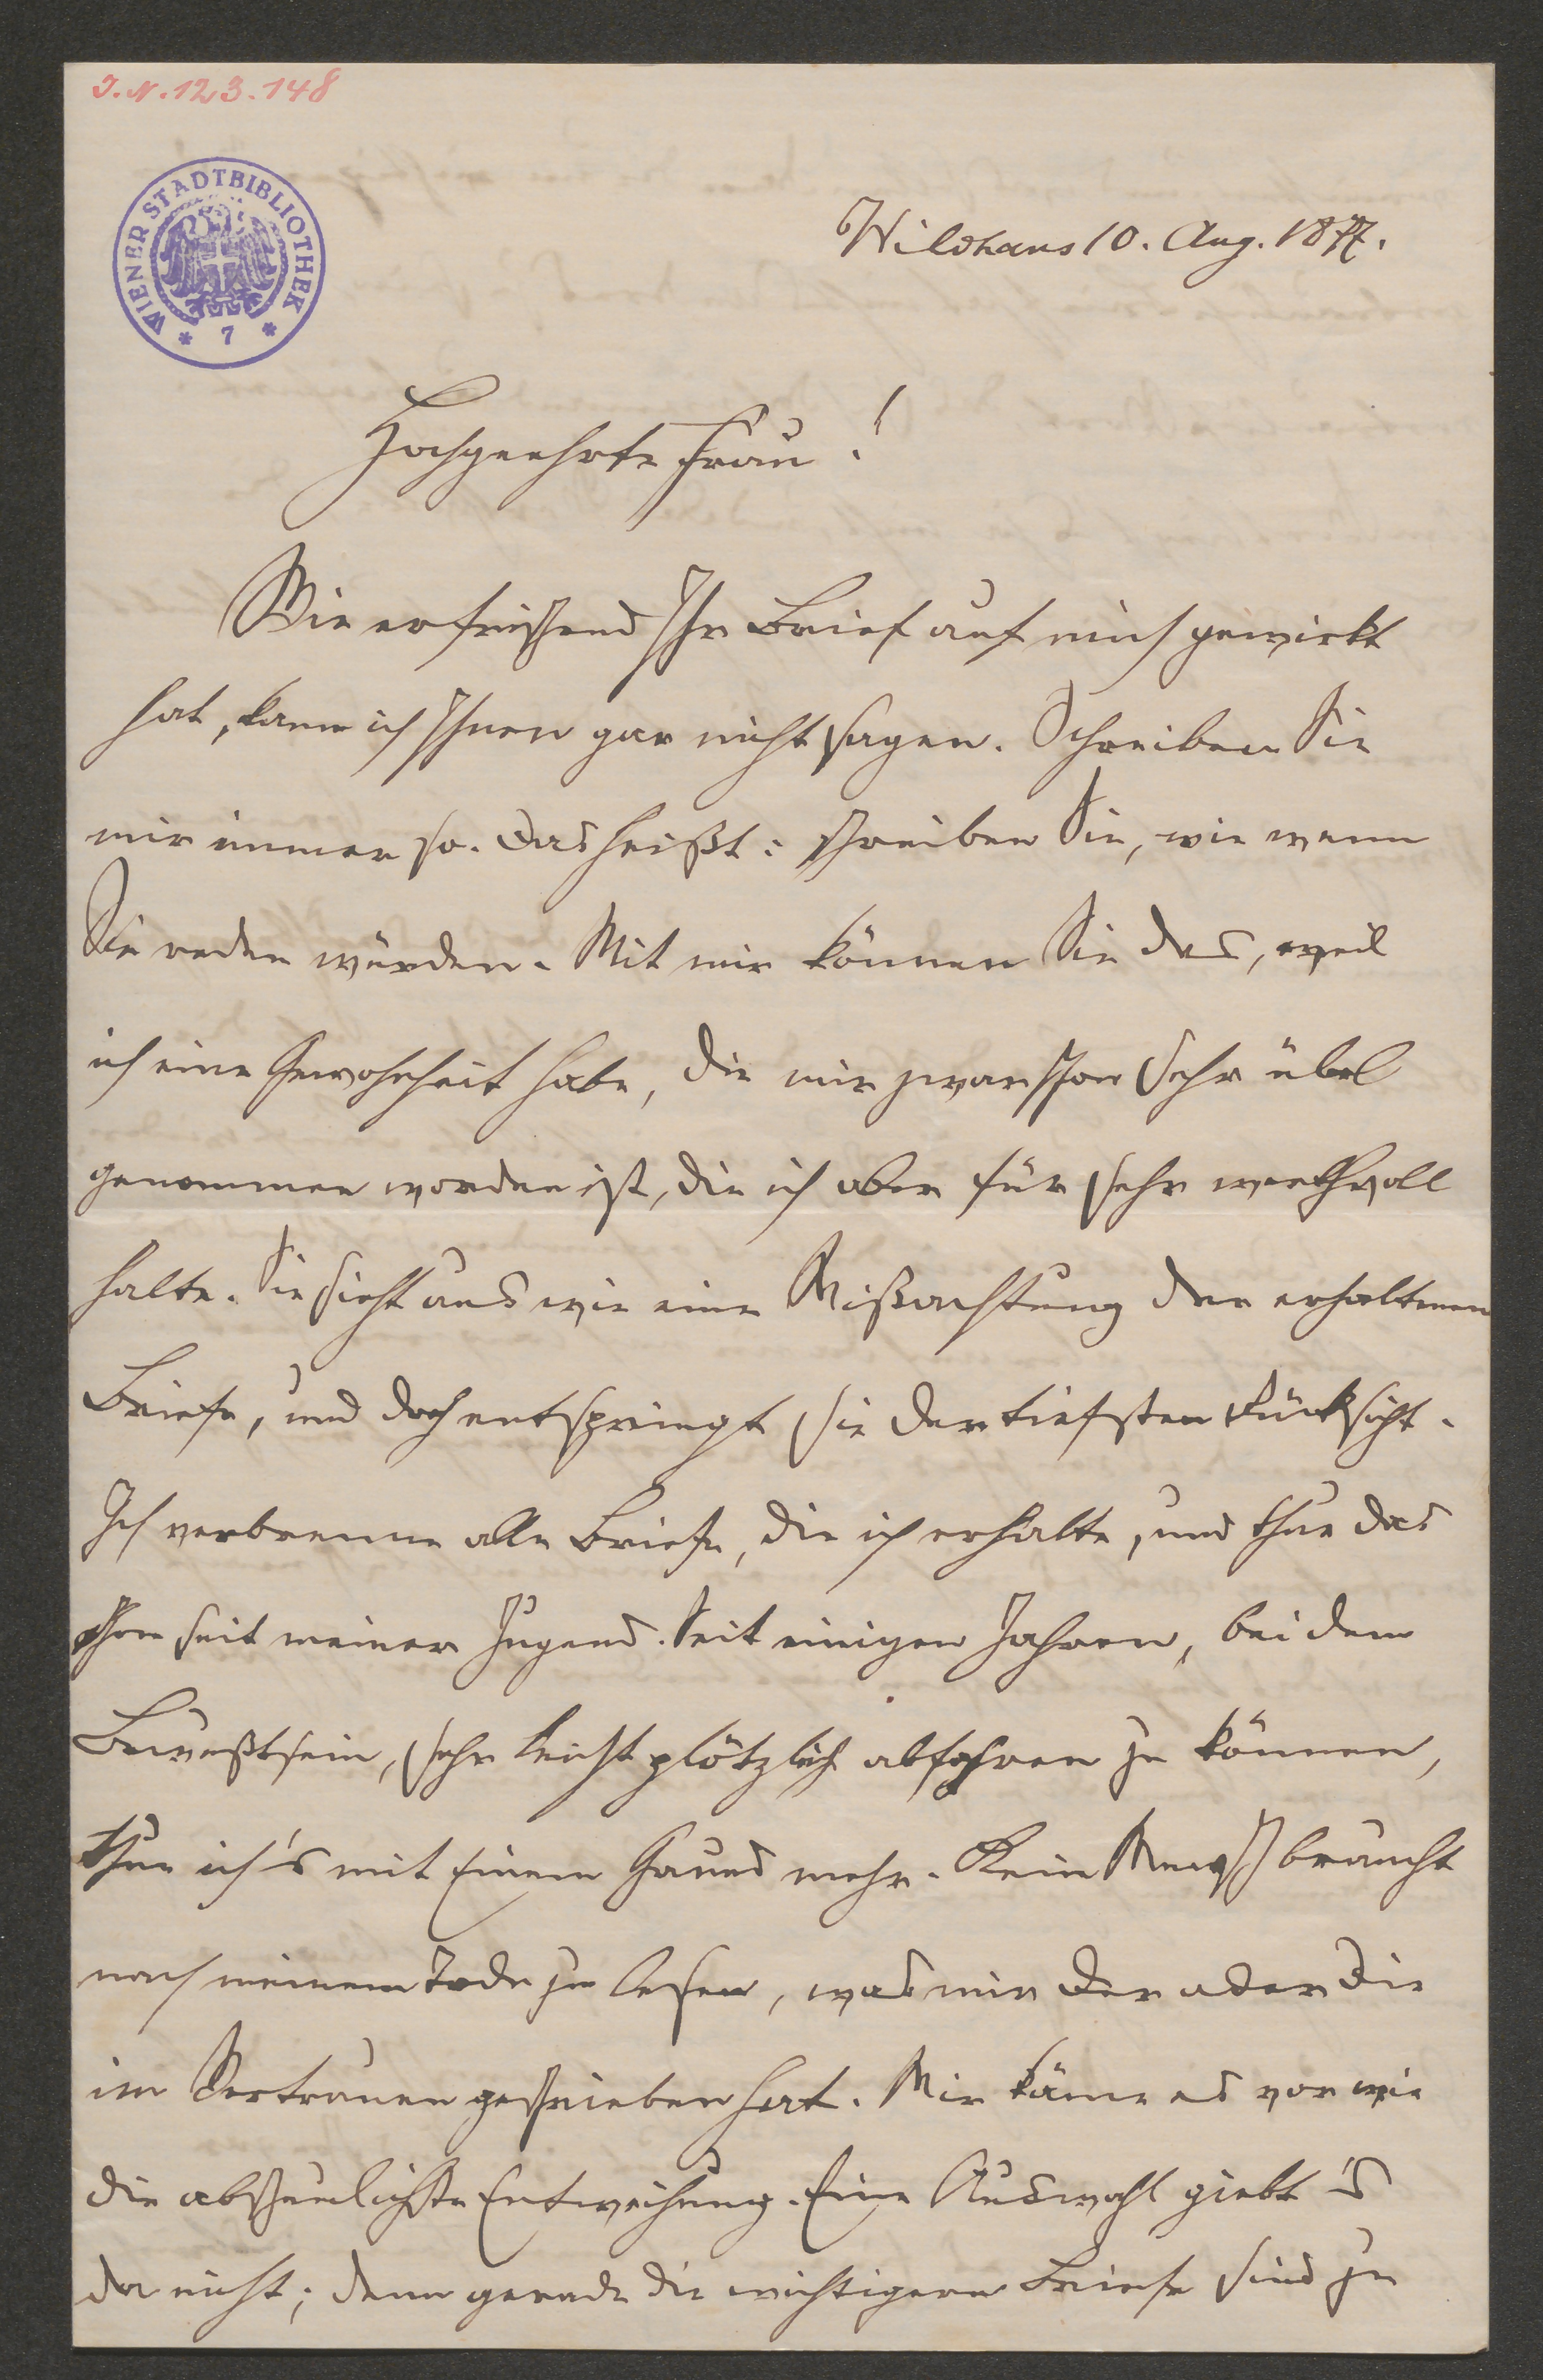 I.N. 123.148
WIENER STADTBIBLIOTHEK
* 7 *
Wildhaus 10. Aug. 1877.
Hochgeehrte Frau!
Wie erfrischend Ihr Brief auf mich gewirkt
hat, kann ich Ihnen gar nicht sagen. Schreiben Sie
mir immer so. Das heißt: schreiben Sie, wie wenn
Sie reden würden. Mit mir können Sie das, weil
ich eine Gewohnheit habe, die mir zwar schon sehr übel
genommen worden ist, die ich aber für sehr werthvoll
halte. Sie sieht aus wie eine Mißachtung der erhaltenen
Briefe, und doch entspringt sie der tiefsten Rücksicht.
Ich verbrenne alle Briefe, die ich erhalte, und thue das
schon seit meiner Jugend. Seit einigen Jahren, bei dem
Bewußtsein, sehr leicht plötzlich abfahren zu können,
thue ich's mit Einem Grund mehr. Kein Mensch braucht
nach meinem Tode zu lesen, was mir Der oder Die
im Vertrauen geschrieben hat. Mir käme es vor wie
die abscheulichste Entweihung. Eine Auswahl giebt's
da nicht; denn gerade die wichtigern Briefe sind zu